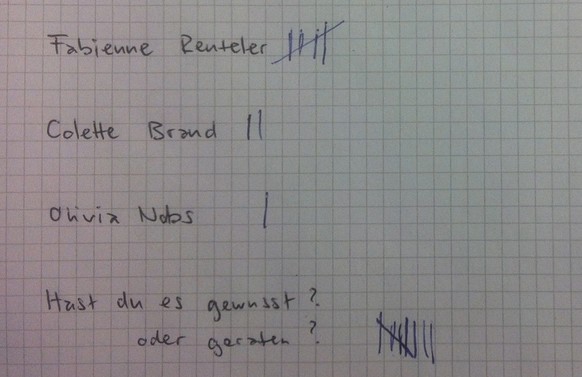 Fabienne Renteler
Colette Brand
Olivia Nobs
Hast du es gewusst?
oder geraten?